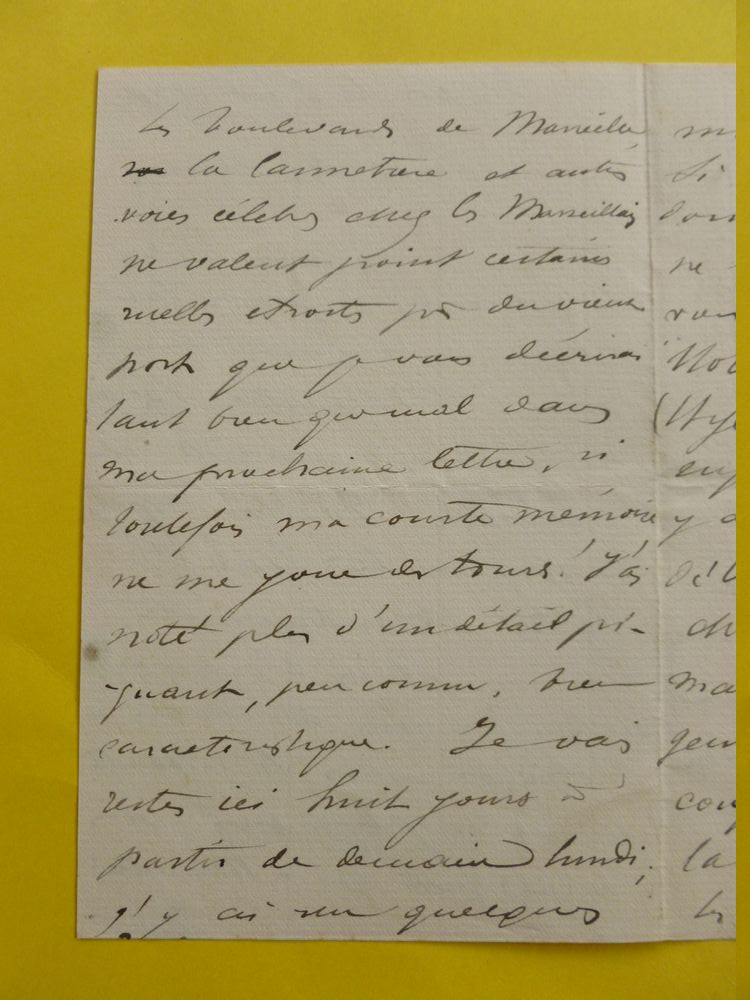 les boulevards de Marseille
la Cannebière et autres
voies célèbres chez les Marseillais
ne valent point certaines
ruelles etroites près du vieux
port que je vous décrirai
tant bien que mal dans
ma prochaine lettre, si
toutefois ma courte mémoire
ne me joue des tours! J'ai
noté plus d'un détail pi-
quant, peu connu, bien
caracteristique. Je vais
rester ici huit jours à
partir de demain lundi;
j'y ai vu quelques